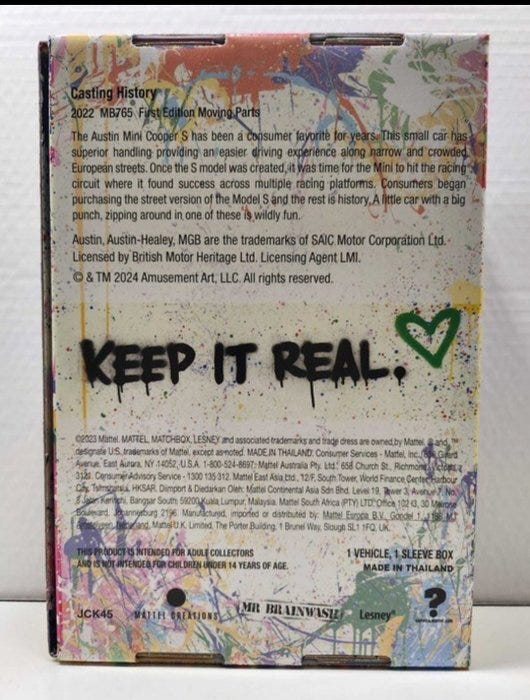 Casting History
2022 MB765 First Edition Moving Parts
The Austin Mini Cooper S has been a consumer favorite for years. This small car has
superior handling providing an easier driving experience along narrow and crowded
European streets. Once the S model was created, it was time for the Mini to hit the racing
circuit where it found success across multiple racing platforms. Consumers began
purchasing the street version of the Model S and the rest is history. A little car with a big
punch, zipping around in one of these is wildly fun.
Austin, Austin-Healey, MGB are the trademarks of SAIC Motor Corporation Ltd.
Licensed by British Motor Heritage Ltd. Licensing Agent LMI.
© & TM 2024 Amusement Art, LLC. All rights reserved.
KEEP IT REAL.
©2023 Mattel. MATTEL, MATCHBOX, LESNEY and associated trademarks and trade dress are owned by Mattel. ® and ™
designate U.S. trademarks of Mattel, except as noted. MADE IN THAILAND. Consumer Services - Mattel, Inc., 636 Girard
Avenue, East Aurora, NY 14052, U.S.A. 1-800-524-8697; Mattel Australia Pty. Ltd., 658 Church St., Richmond, Victoria,
3121. Consumer Advisory Service - 1300 135 312. Mattel East Asia Ltd., 12/F, South Tower, World Finance Center, Harbour
City, Tsimshatsui, HKSAR. Diimport & Diedarkan Oleh: Mattel Continental Asia Sdn Bhd. Level 19, Tower 3, Avenue 7, No.
8 Jalan Kerinchi, Bangsar South, 59200 Kuala Lumpur, Malaysia. Mattel South Africa (PTY) LTD, Office 102 I3, 30 Melrose
Boulevard, Johannesburg 2196. Manufactured, imported or distributed by: Mattel Europa B.V., Gondel 1, 1186 MJ
Amstelveen, Nederland. Mattel U.K. Limited, The Porter Building, 1 Brunel Way, Slough SL1 1FQ, UK.
THIS PRODUCT IS INTENDED FOR ADULT COLLECTORS
AND IS NOT INTENDED FOR CHILDREN UNDER 14 YEARS OF AGE.
1 VEHICLE, 1 SLEEVE BOX
MADE IN THAILAND
JCK45
MATTEL CREATIONS
MR BRAINWASH
Lesney®
?